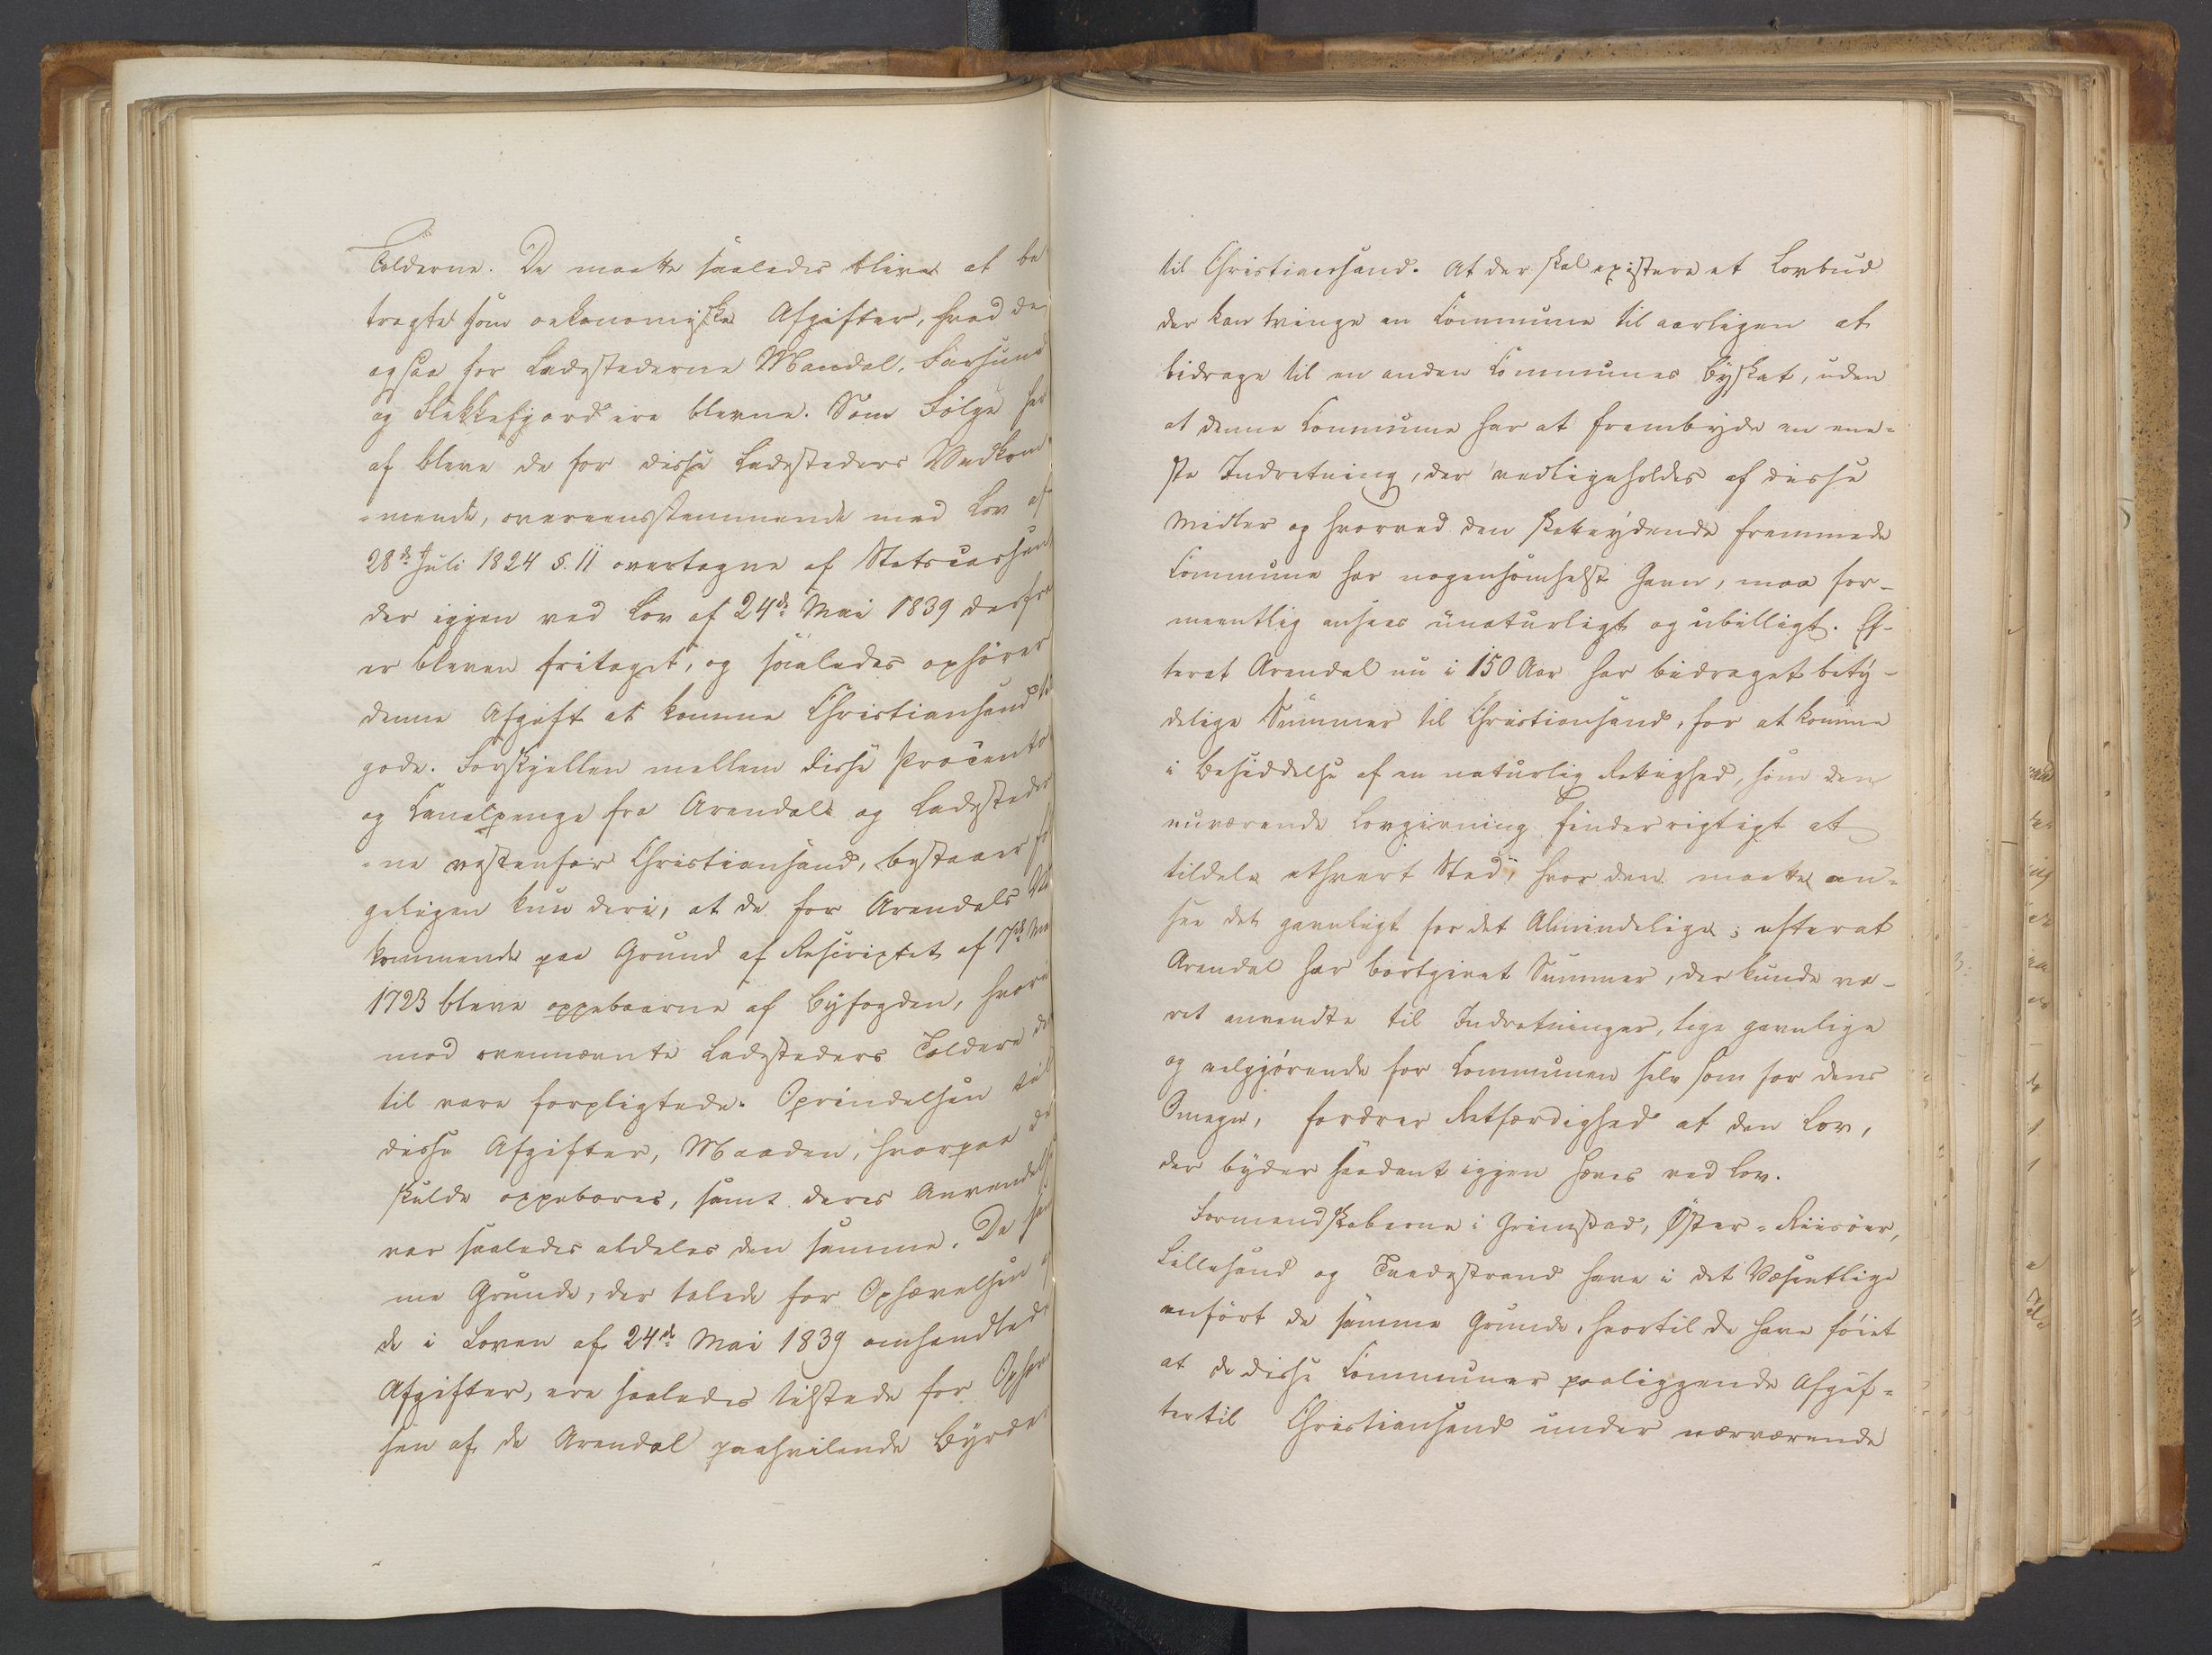 Tolderne. De maatte saaledes blive at be
tragte som oekonomiske Afgifter, hvad de
ogsaa for Ladestederne Mandal, Farsund
og Flekkefjord ere blevne. Som Følge her
af bleve de for disse Ladesteders Vedkom
-mende, overeensstemmende med Lov af
28de Juli 1824 §. 11 overtagne af Statscassen
der igjen ved Lov af 24de Mai 1839 derfra
er bleven fritaget, og saaledes ophører
denne Afgift at komme Christiansand til
gode. Forskjellen mellem disse Procento
og Canalpenge fra Arendal og Ladestedor
-ne vestenfor Christiansand, bestaaer føl
geligen kun deri, at de for Arendals Ved
kommende paa Grund af Rescriptet af 7de Ma
1723 bleve oppebaarne af Byfogden, hvori
mod ovennævnte Ladesteders Toldere der
til vare forpligtede. Oprindelsen til
disse Afgifter, Maaden, hvorpaa de
skulde oppebæres, samt deres Anvendelse
var saaledes aldeles den samme. De sam
me Grunde, der talede for Ophævelsen af
de i Loven af 24de Mai 1839 omhandlede
Afgifter, ere saaledes tilstede for Ophæv
sen af de Arendal paahvilende Byrder
til Christiansand. At der skal existere et Lovbud
der kan tvinge en Commune til aarligen at
bidrage til en anden Communes Byskat, uden
at denne Commune har at frembyde en ene-
ste Indretning, der vedligeholdes af disse
Midler og hvorved den skatydende fremmede
Commune har nogensomhelst Gavn, maa for-
meentlig ansees unaturligt og ubilligt. Ef-
terat Arendal nu i 150 Aar har bidraget bety-
delige Summer til Christiansand, for at komme
i Besiddelse af en naturlig Rettighed, som den
nuværende Lovgivning finder rigtigt at
tildele ethvert Sted, hvor den maatte an-
see det gavnligt for det Almindelige; efterat
Arendal har bortgivet Summer, der kunde væ-
ret anvendte til Indretninger, lige gavnlige
og velgjørende for Communen selv som for dens
Omegn, fordrer Retfærdighed at den Lov,
der byder saadant igjen hæves ved Lov.
Formandskaberne i Grimstad, Øster-Riisöer,
Lillesand og Tvedestrand have i det Væsentlige
anført de samme Grunde, hvortil de have föiet
at de disse Communer paaliggende Afgif-
ter til Christiansand under nærværende